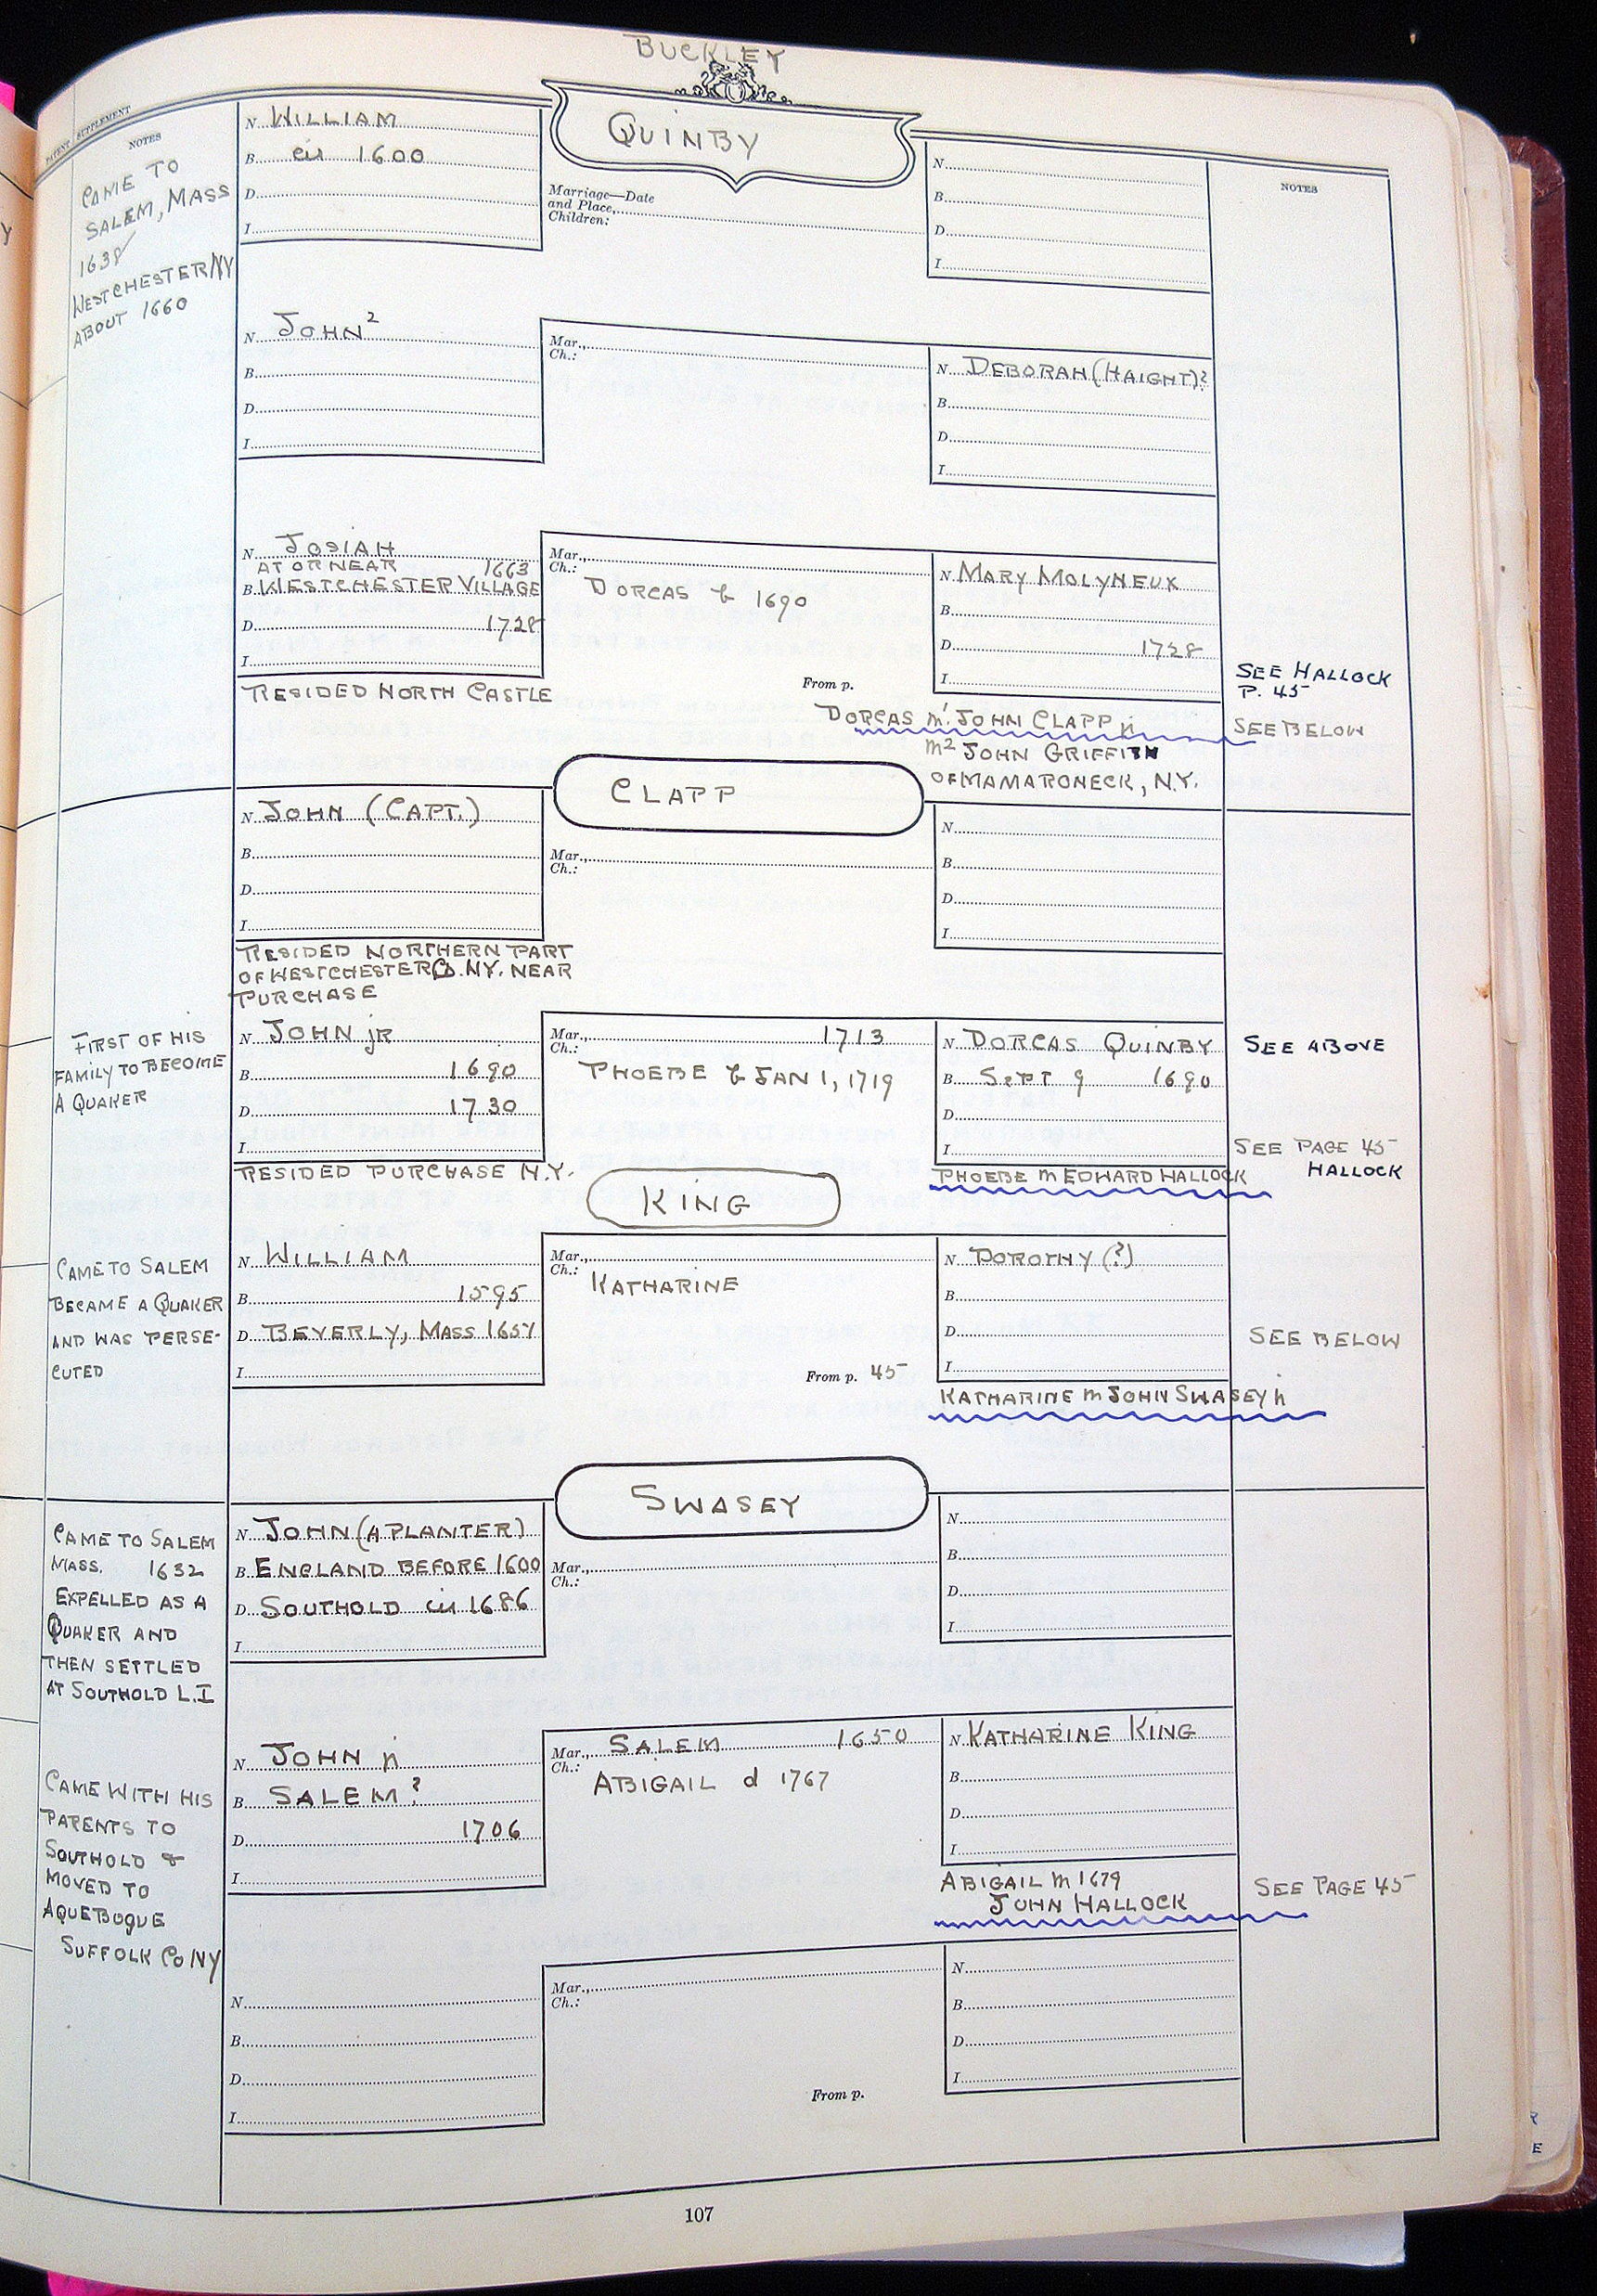 BUCKLEY
QUINBY
PATENT SUPPLEMENT
NOTES
CAME TO
SALEM, MASS
1638
WESTCHESTER NY
ABOUT 1660
N. WILLIAM
B. cir 1600
D.
I.
Marriage—Date
and Place,
Children:
N.
B.
D.
I.
NOTES
N. JOHN 2
B.
D.
I.
Mar.,
Ch.:
N. DEBORAH (HAIGHT)?
B.
D.
I.
N. JOSIAH
AT OR NEAR 1663
B. WESTCHESTER VILLAGE
D. 1728
I.
RESIDED NORTH CASTLE
Mar.,
Ch.:
DORCAS b 1690
From p.
N. MARY MOLYNEUX
B.
D. 1728
I.
SEE HALLOCK
P. 45
DORCAS m1 JOHN CLAPP jr
SEE BELOW
m2 JOHN GRIFFITH
OF MAMARONECK, N.Y.
CLAPP
N. JOHN (CAPT.)
B.
D.
I.
RESIDED NORTHERN PART
OF WESTCHESTER CO. NY. NEAR
PURCHASE
Mar.,
Ch.:
N.
B.
D.
I.
FIRST OF HIS
FAMILY TO BECOME
A QUAKER
N. JOHN jR
B. 1690
D. 1730
I.
RESIDED PURCHASE N.Y.
Mar., 1713
Ch.:
PHOEBE b JAN 1, 1719
N. DORCAS QUINBY
B. SEPT 9 1690
D.
I.
SEE ABOVE
SEE PAGE 45
HALLOCK
PHOEBE m EDWARD HALLOCK
KING
CAME TO SALEM
BECAME A QUAKER
AND WAS PERSE-
CUTED
N. WILLIAM
B. 1595
D. BEVERLY, MASS 1651
I.
Mar.,
Ch.:
KATHARINE
From p. 45
N. DOROTHY (?)
B.
D.
I.
SEE BELOW
KATHARINE m JOHN SWASEY jr
SWASEY
CAME TO SALEM
MASS. 1632
EXPELLED AS A
QUAKER AND
THEN SETTLED
AT SOUTHOLD L.I
N. JOHN (A PLANTER)
B. ENGLAND BEFORE 1600
D. SOUTHOLD cir 1686
I.
Mar.,
Ch.:
N.
B.
D.
I.
CAME WITH HIS
PARENTS TO
SOUTHOLD &
MOVED TO
AQUEBOGUE
SUFFOLK CO NY
N. JOHN jr
B. SALEM?
D. 1706
I.
Mar., SALEM 1650
Ch.:
ABIGAIL d 1767
N. KATHARINE KING
B.
D.
I.
ABIGAIL m 1679
JOHN HALLOCK
SEE PAGE 45
N.
B.
D.
I.
Mar.,
Ch.:
From p.
N.
B.
D.
I.
107